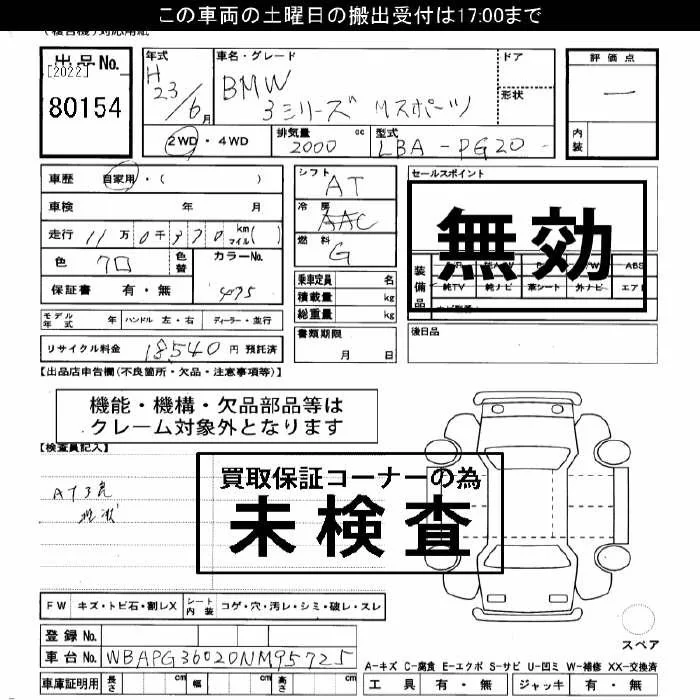 この車両の土曜日の搬出受付は17:00まで
出品No.
[2022]
80154
年式
H 23/6月
車名・グレード
BMW
3シリーズ Mスポーツ
ドア
形状
評価点
一
内装
2WD・4WD
排気量 cc
2000
型式
LBA-PG20-
車歴 自家用・( )
車検 年 月
走行 11万0千 70 km マイル( )
色 クロ 色替 カラーNo.
475
保証書 有・無
モデル年式 年 ハンドル 左・右 ディーラー・並行
リサイクル料金 18540 円 預託済
シフト
AT
冷房
AAC
燃料
G
乗車定員 名
積載量 kg
総重量 kg
書類期限
月 日
セールスポイント
無効
装備品
ABS
純TV 純ナビ 革シート 外ナビ エアB
後日品
【出品店申告欄(不良箇所・欠品・注意事項等)】
機能・機構・欠品部品等は
クレーム対象外となります
【検査員記入】
買取保証コーナーの為
未検査
FW キズ・トビ石・割レX シート内装 コゲ・穴・汚レ・シミ・破レ・スレ
登録No.
車台No. WBAPG36020NM95725
車庫証明用 長さ cm 幅 cm 高さ cm
スペア
A-キズ C-腐食 E-エクボ S-サビ U-凹ミ W-補修 XX-交換済
工具 有・無 ジャッキ 有・無